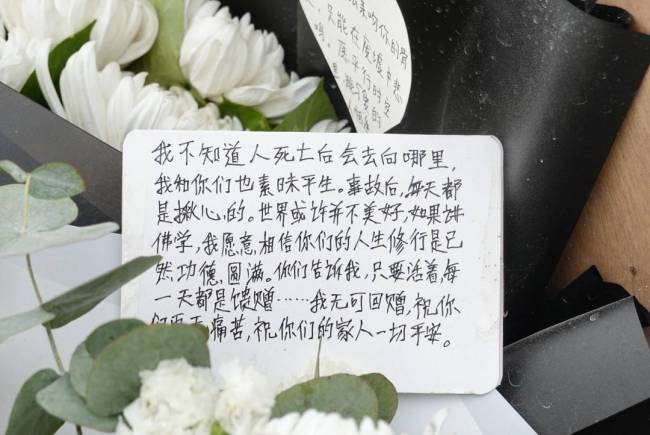 吻你的骨
只能在废墟中悲
鸣。
平行时空
我不知道人死亡后会去向哪里,
我和你们也素昧平生。事故后,每天都
是揪心的。世界或许并不美好,如果讲
佛学,我愿意相信你们的人生修行是已
然功德,圆滋。你们告诉我,只要活着,每
一天都是馈赠……我无可回赠,祝你
痛苦,祝你们的家人一切平安。